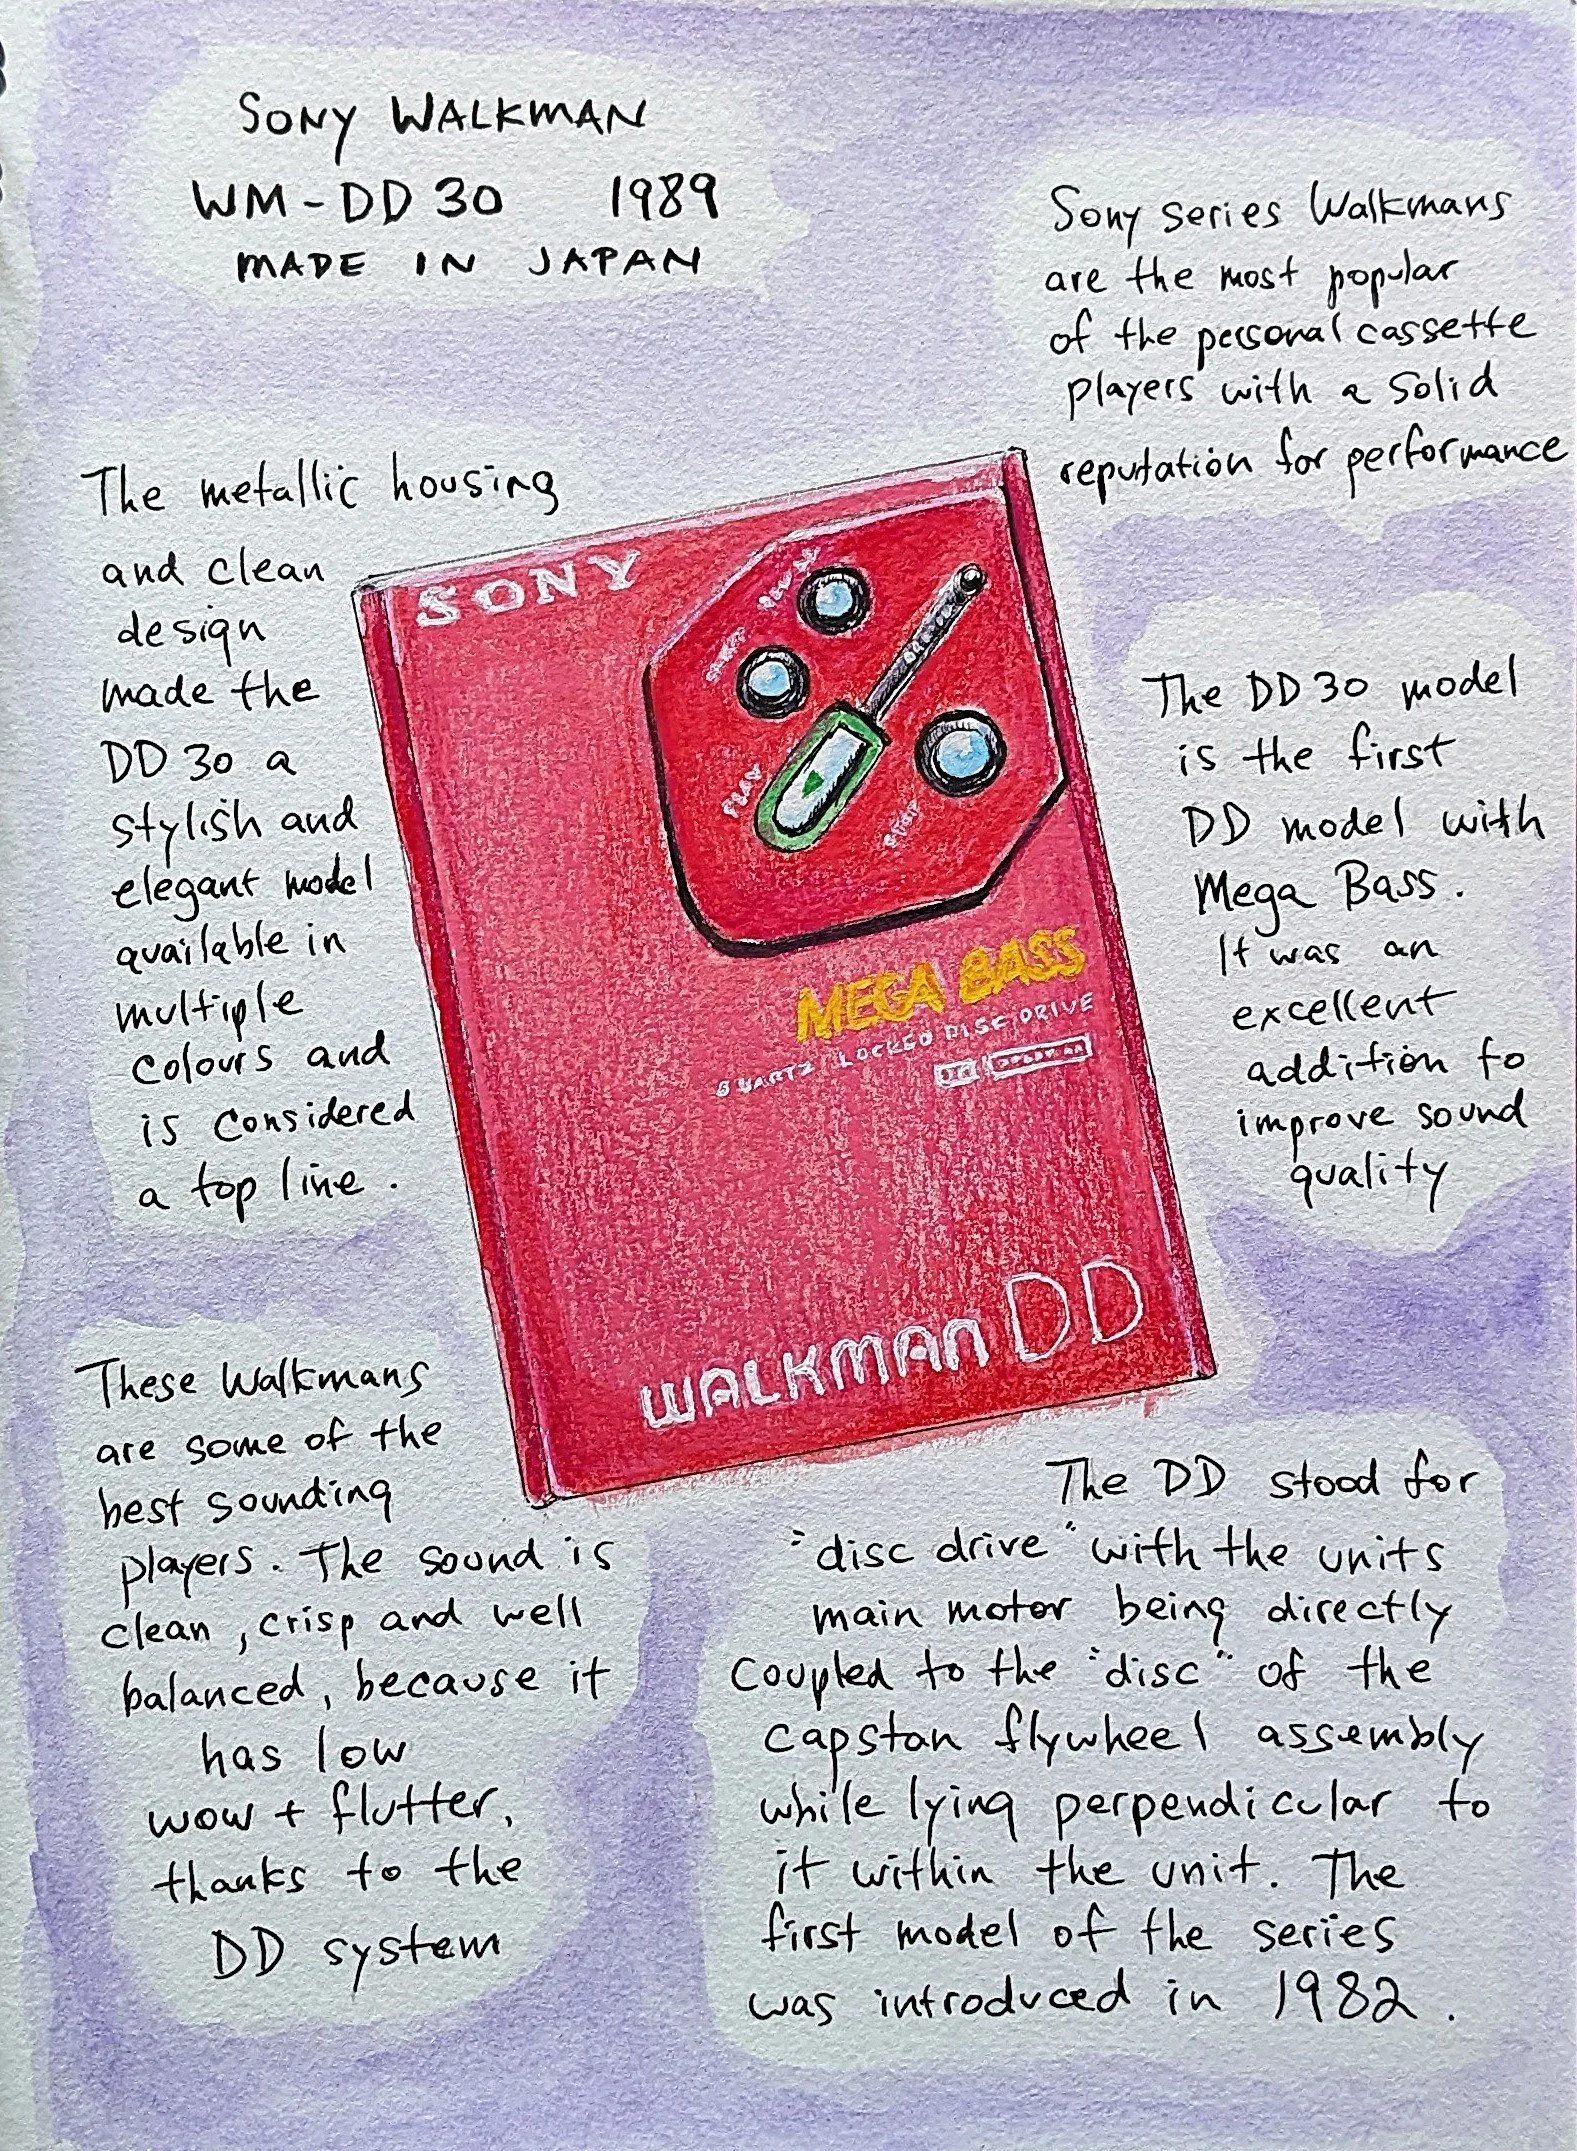 SONY WALKMAN
WM-DD 30 1989
MADE IN JAPAN
Sony series Walkmans
are the most popular
of the personal cassette
players with a solid
reputation for performance
The metallic housing
and clean
design
made the
DD 30 a
stylish and
elegant model
available in
multiple
colours and
is considered
a top line.
SONY
PLAY
STOP
MEGA BASS
QUARTZ LOCKED DISC DRIVE
WALKMAN DD
The DD 30 model
is the first
DD model with
Mega Bass.
It was an
excellent
addition to
improve sound
quality
These Walkmans
are some of the
best sounding
players. The sound is
clean, crisp and well
balanced, because it
has low
wow + flutter,
thanks to the
DD system
The DD stood for
"disc drive" with the units
main motor being directly
coupled to the "disc" of the
capstan flywheel assembly
while lying perpendicular to
it within the unit. The
first model of the series
was introduced in 1982.